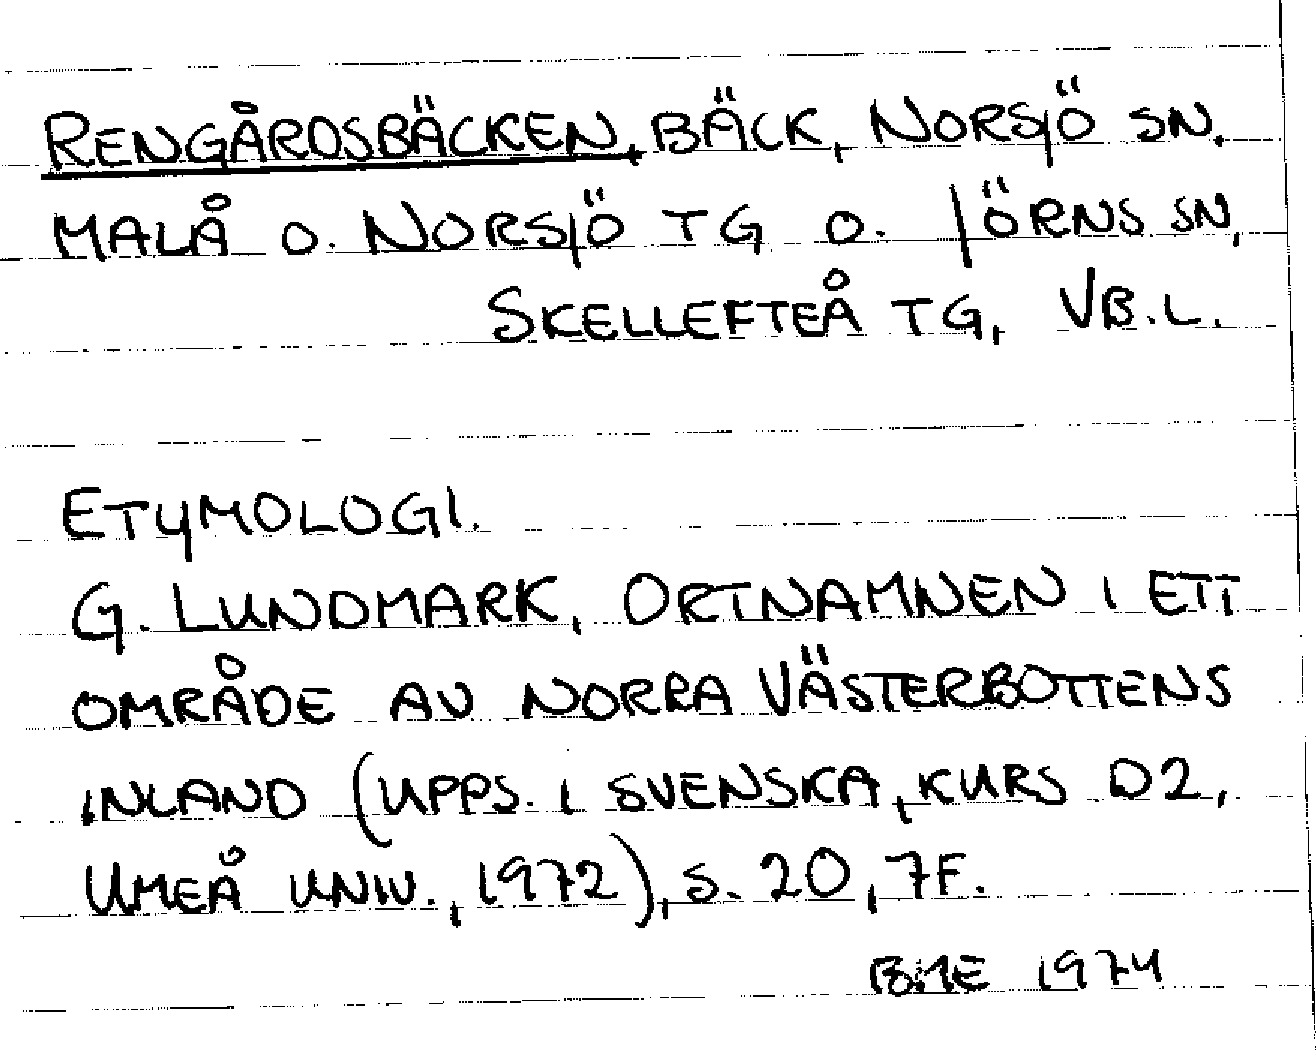 RENGÅRDSBÄCKEN, BÄCK, NORSJÖ SN,
MALÅ O. NORSJÖ TG O. JÖRNS SN,
SKELLEFTEÅ TG, VB.L.
ETYMOLOGI.
G. LUNDMARK, ORTNAMNEN I ETT
OMRÅDE AV NORRA VÄSTERBOTTENS
INLAND (UPPS. I SVENSKA, KURS D2,
UMEÅ UNIV., 1972), S. 20, 7F.
BME 1974